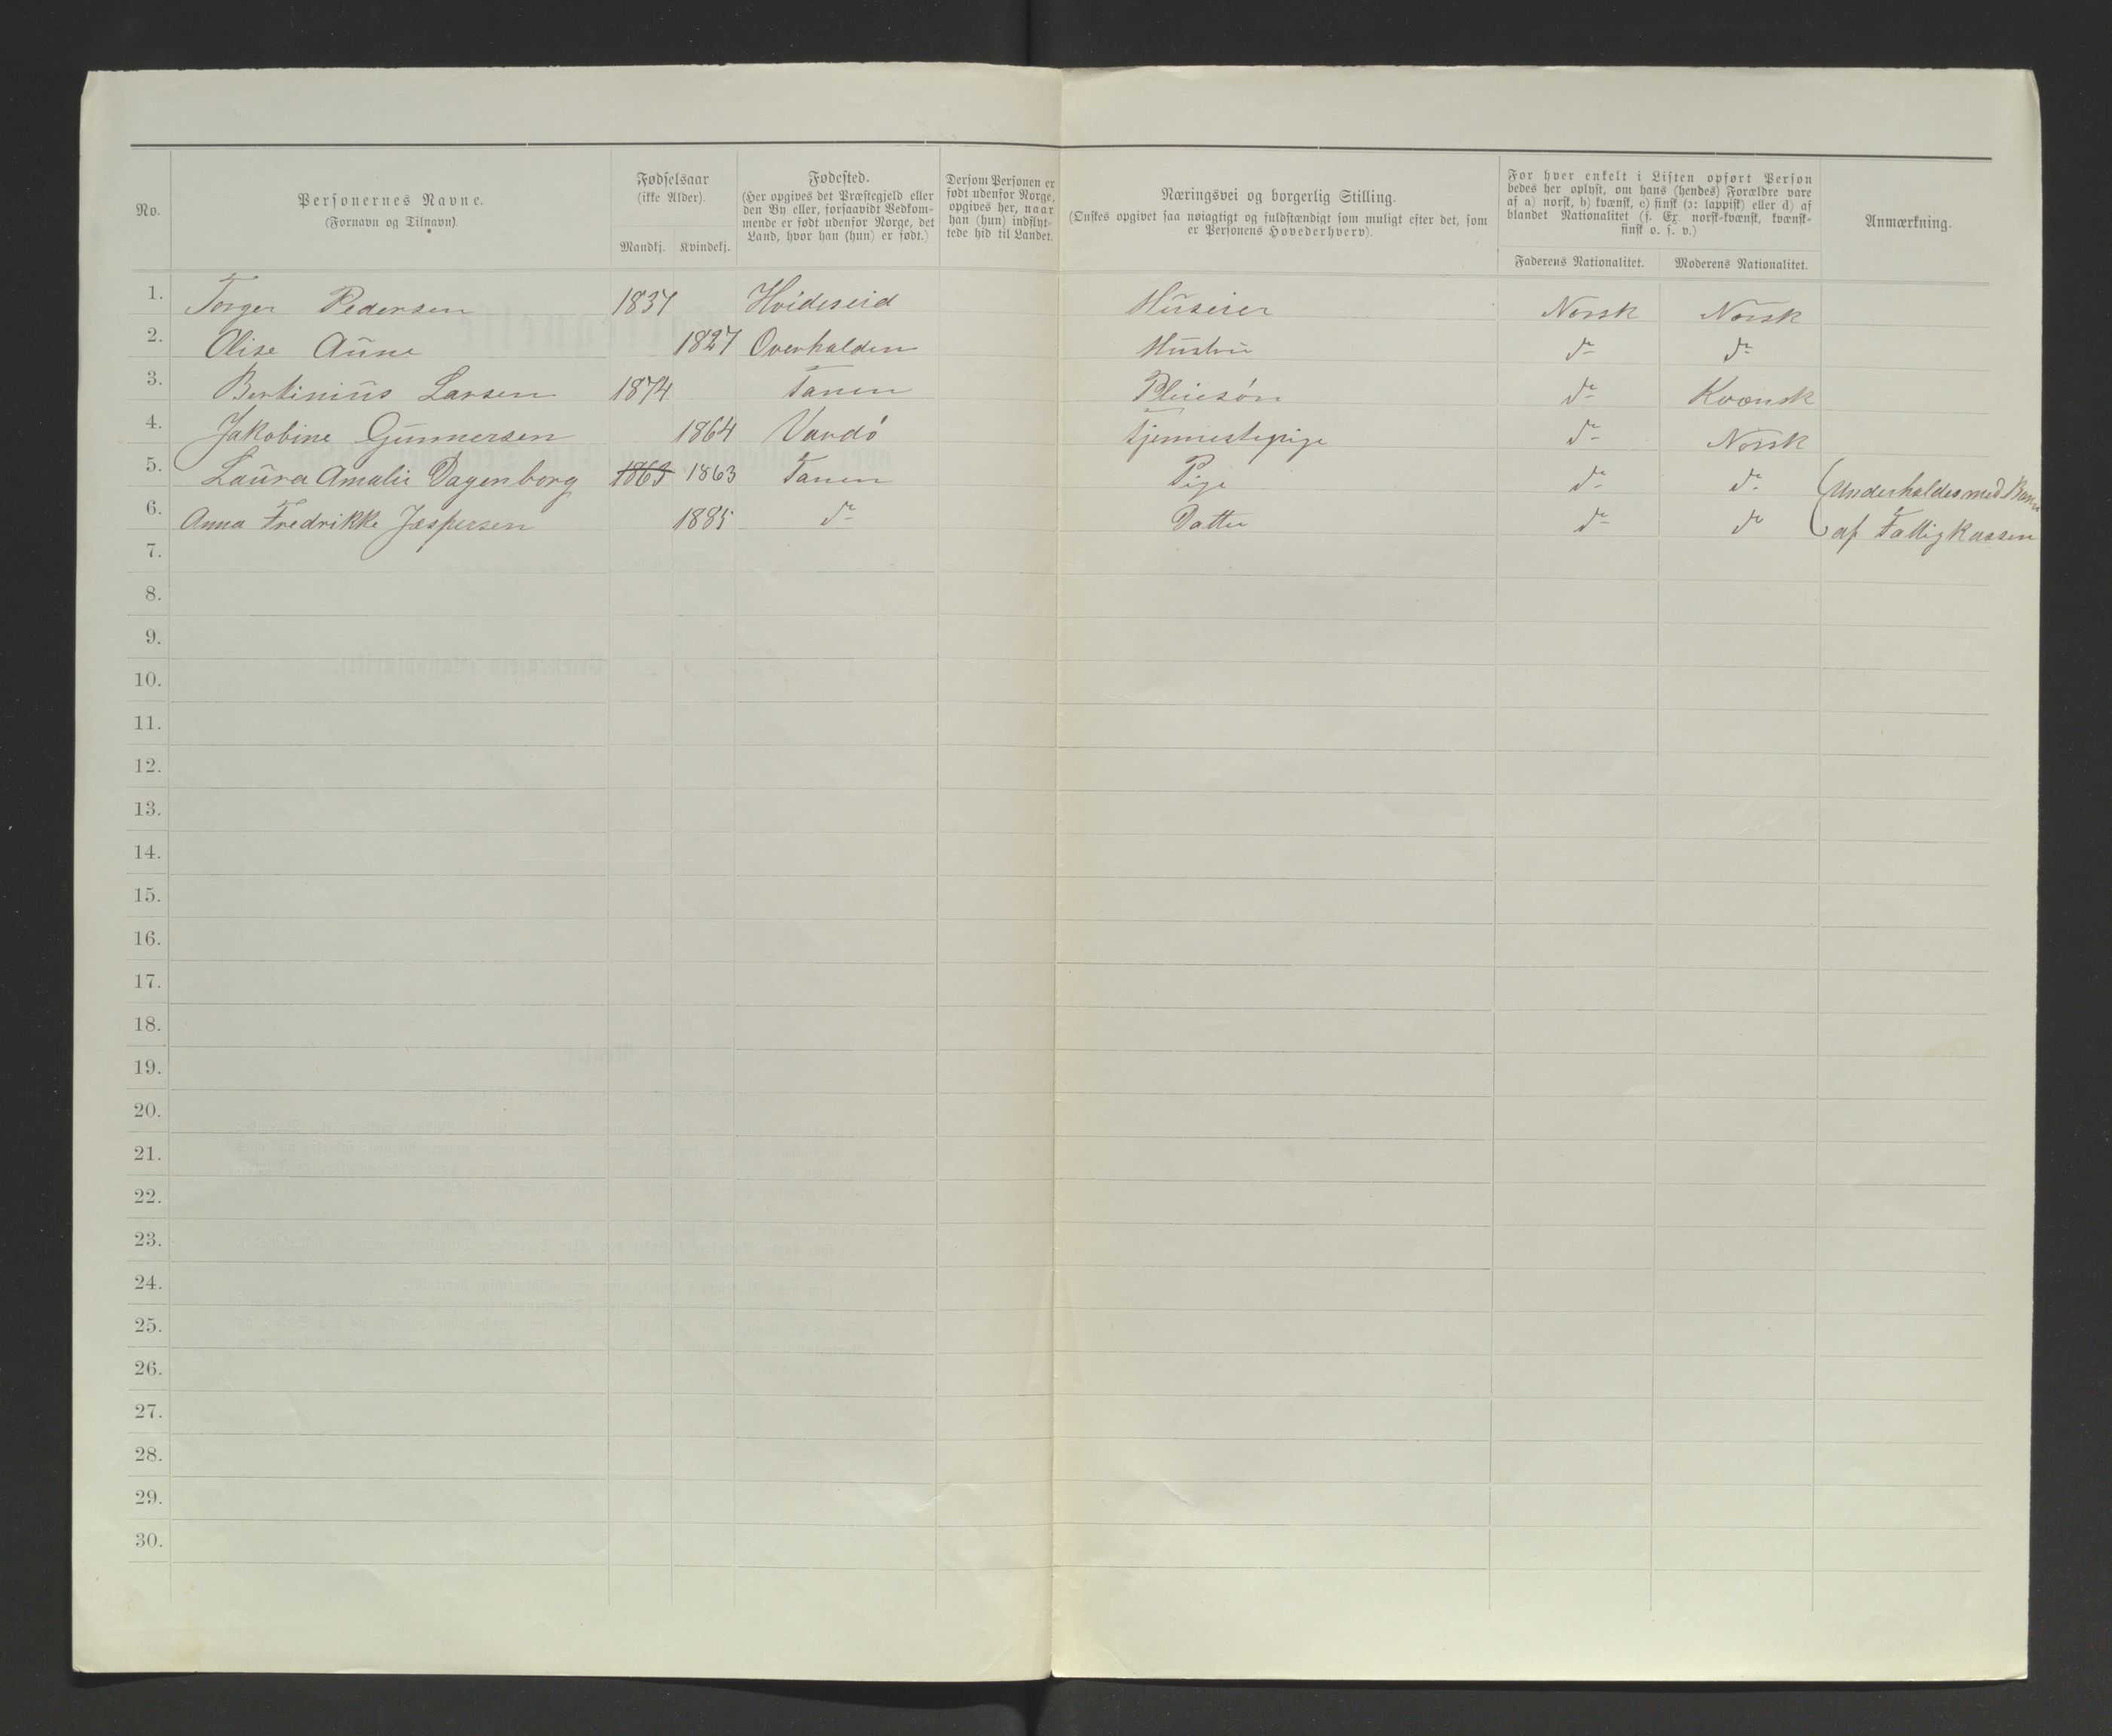 No.
Personernes Navne.
(Fornavn og Tilnavn).
Fødselsaar
(ikke Alder).
Mandkj. Kvindekj.
Fødested.
(Her opgives det Præstegjeld eller
den By eller, forsaavidt Vedkom-
mende er født udenfor Norge, det
Land, hvor han (hun) er født.)
Dersom Personen er
født udenfor Norge,
opgives her, naar
han (hun) indflyt-
tede hid til Landet.
Næringsvei og borgerlig Stilling.
(Ønskes opgivet saa nøiagtigt og fuldstændigt som muligt efter det, som
er Personens Hovederhverv).
For hver enkelt i Listen opført Person
bedes her oplyst, om hans (hendes) Forældre vare
af a) norsk, b) kvænsk, c) finsk (ɔ: lappisk) eller d) af
blandet Nationalitet (s. Ex. norsk-kvænsk, kvænsk-
finsk o. s. v.)
Faderens Nationalitet. Moderens Nationalitet.
Anmærkning.
1. Torger Pedersen 1837 Hvideseid Huseier Norsk Norsk
2. Olise Aune 1827 Overhalden Hustru do do
3. Bertinius Larsen 1874 Tanen Pleiesøn do Kvænsk
4. Jakobine Gunnersen 1864 Vardö tjennestepige do Norsk
5. Laura Amalie Dagenborg 1863 1863 Tanen Pige do do (Underholdes med Barn
6. Anna Fredrikke Jespersen 1885 do Datter do do af Fattigkassen
7.
8.
9.
10.
11.
12.
13.
14.
15.
16.
17.
18.
19.
20.
21.
22.
23.
24.
25.
26.
27.
28.
29.
30.